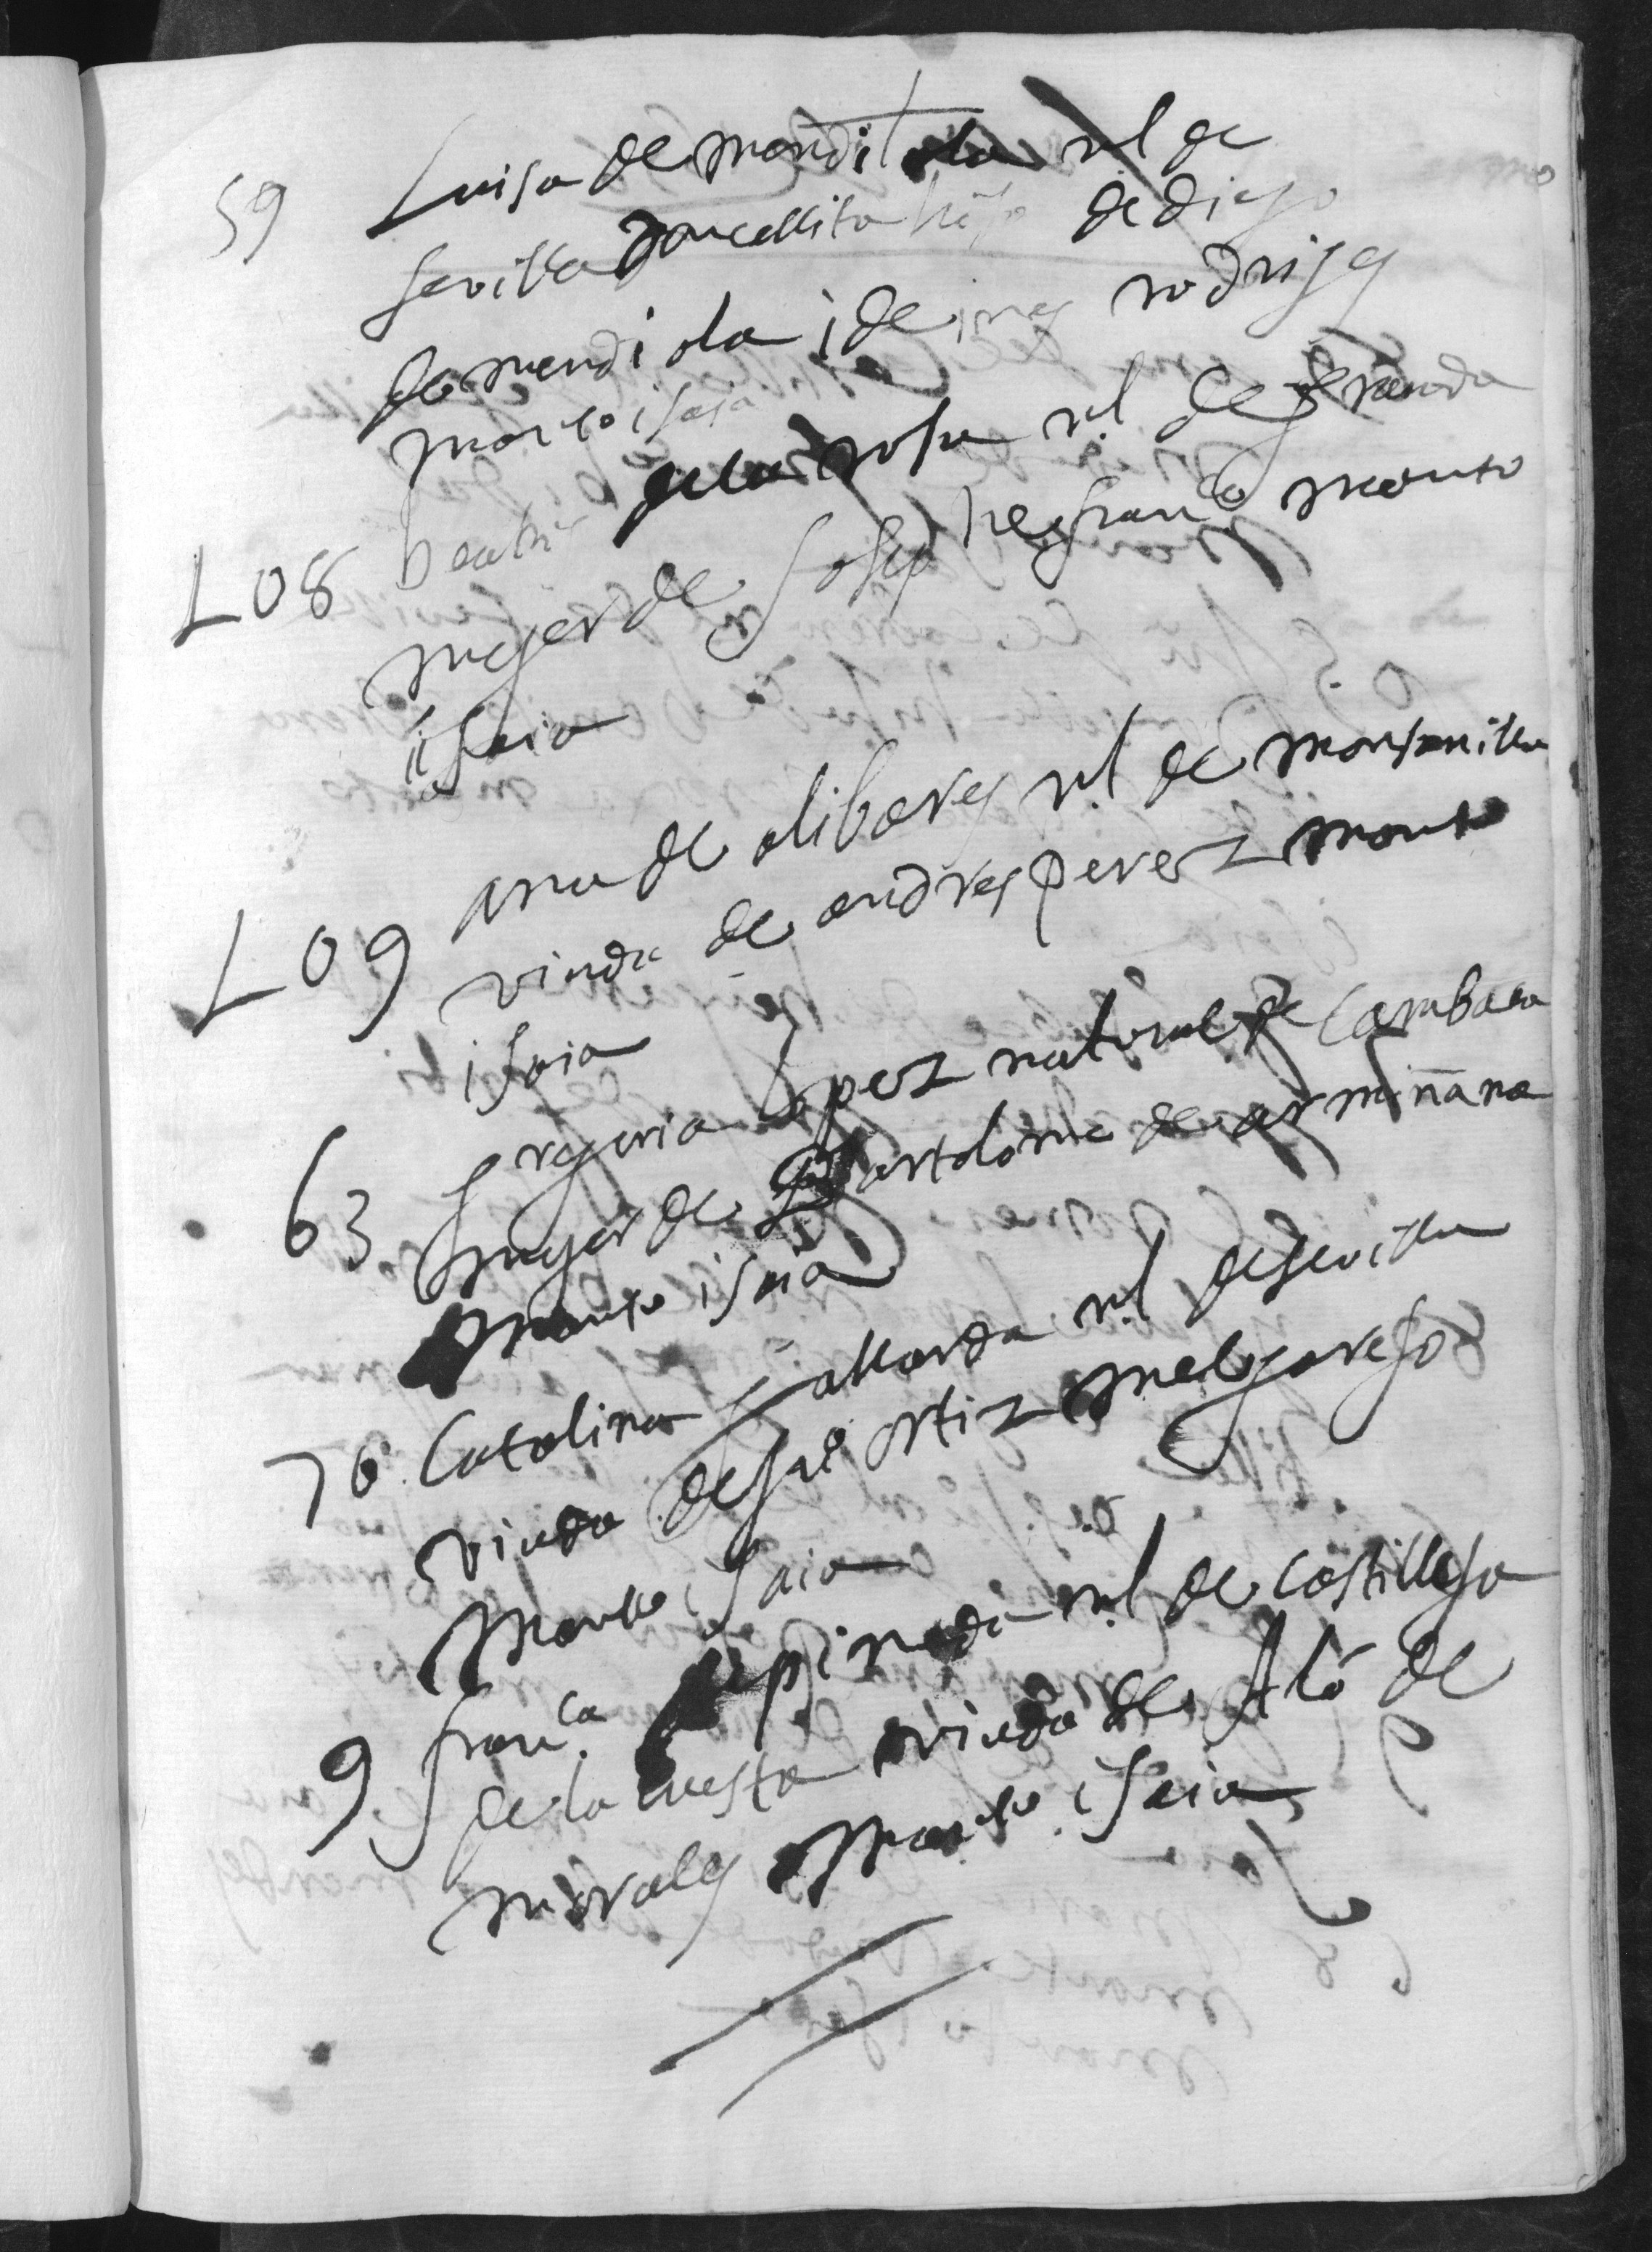 59 Luisa de mendiola nl de
sevilla doncellita hija de diego
de mendiola i de ines rodrigs
manto i saia
108 beatris de la rosa nl de granada
muger de Josep negran manto
i saia
109 ana de olibares nl de mansanilla
viuda de andres perez manto
i saia
63 gregoria lopez natural de
muger de Bartolome de armiñana
manto i saia
76 Catalina gallarda nl de sevilla
viuda de Juº ortiz melgarejo
manto i saia
9 franca de pineda nl de castilleja
de la cuesta viuda de Alº de
morales manto i saia